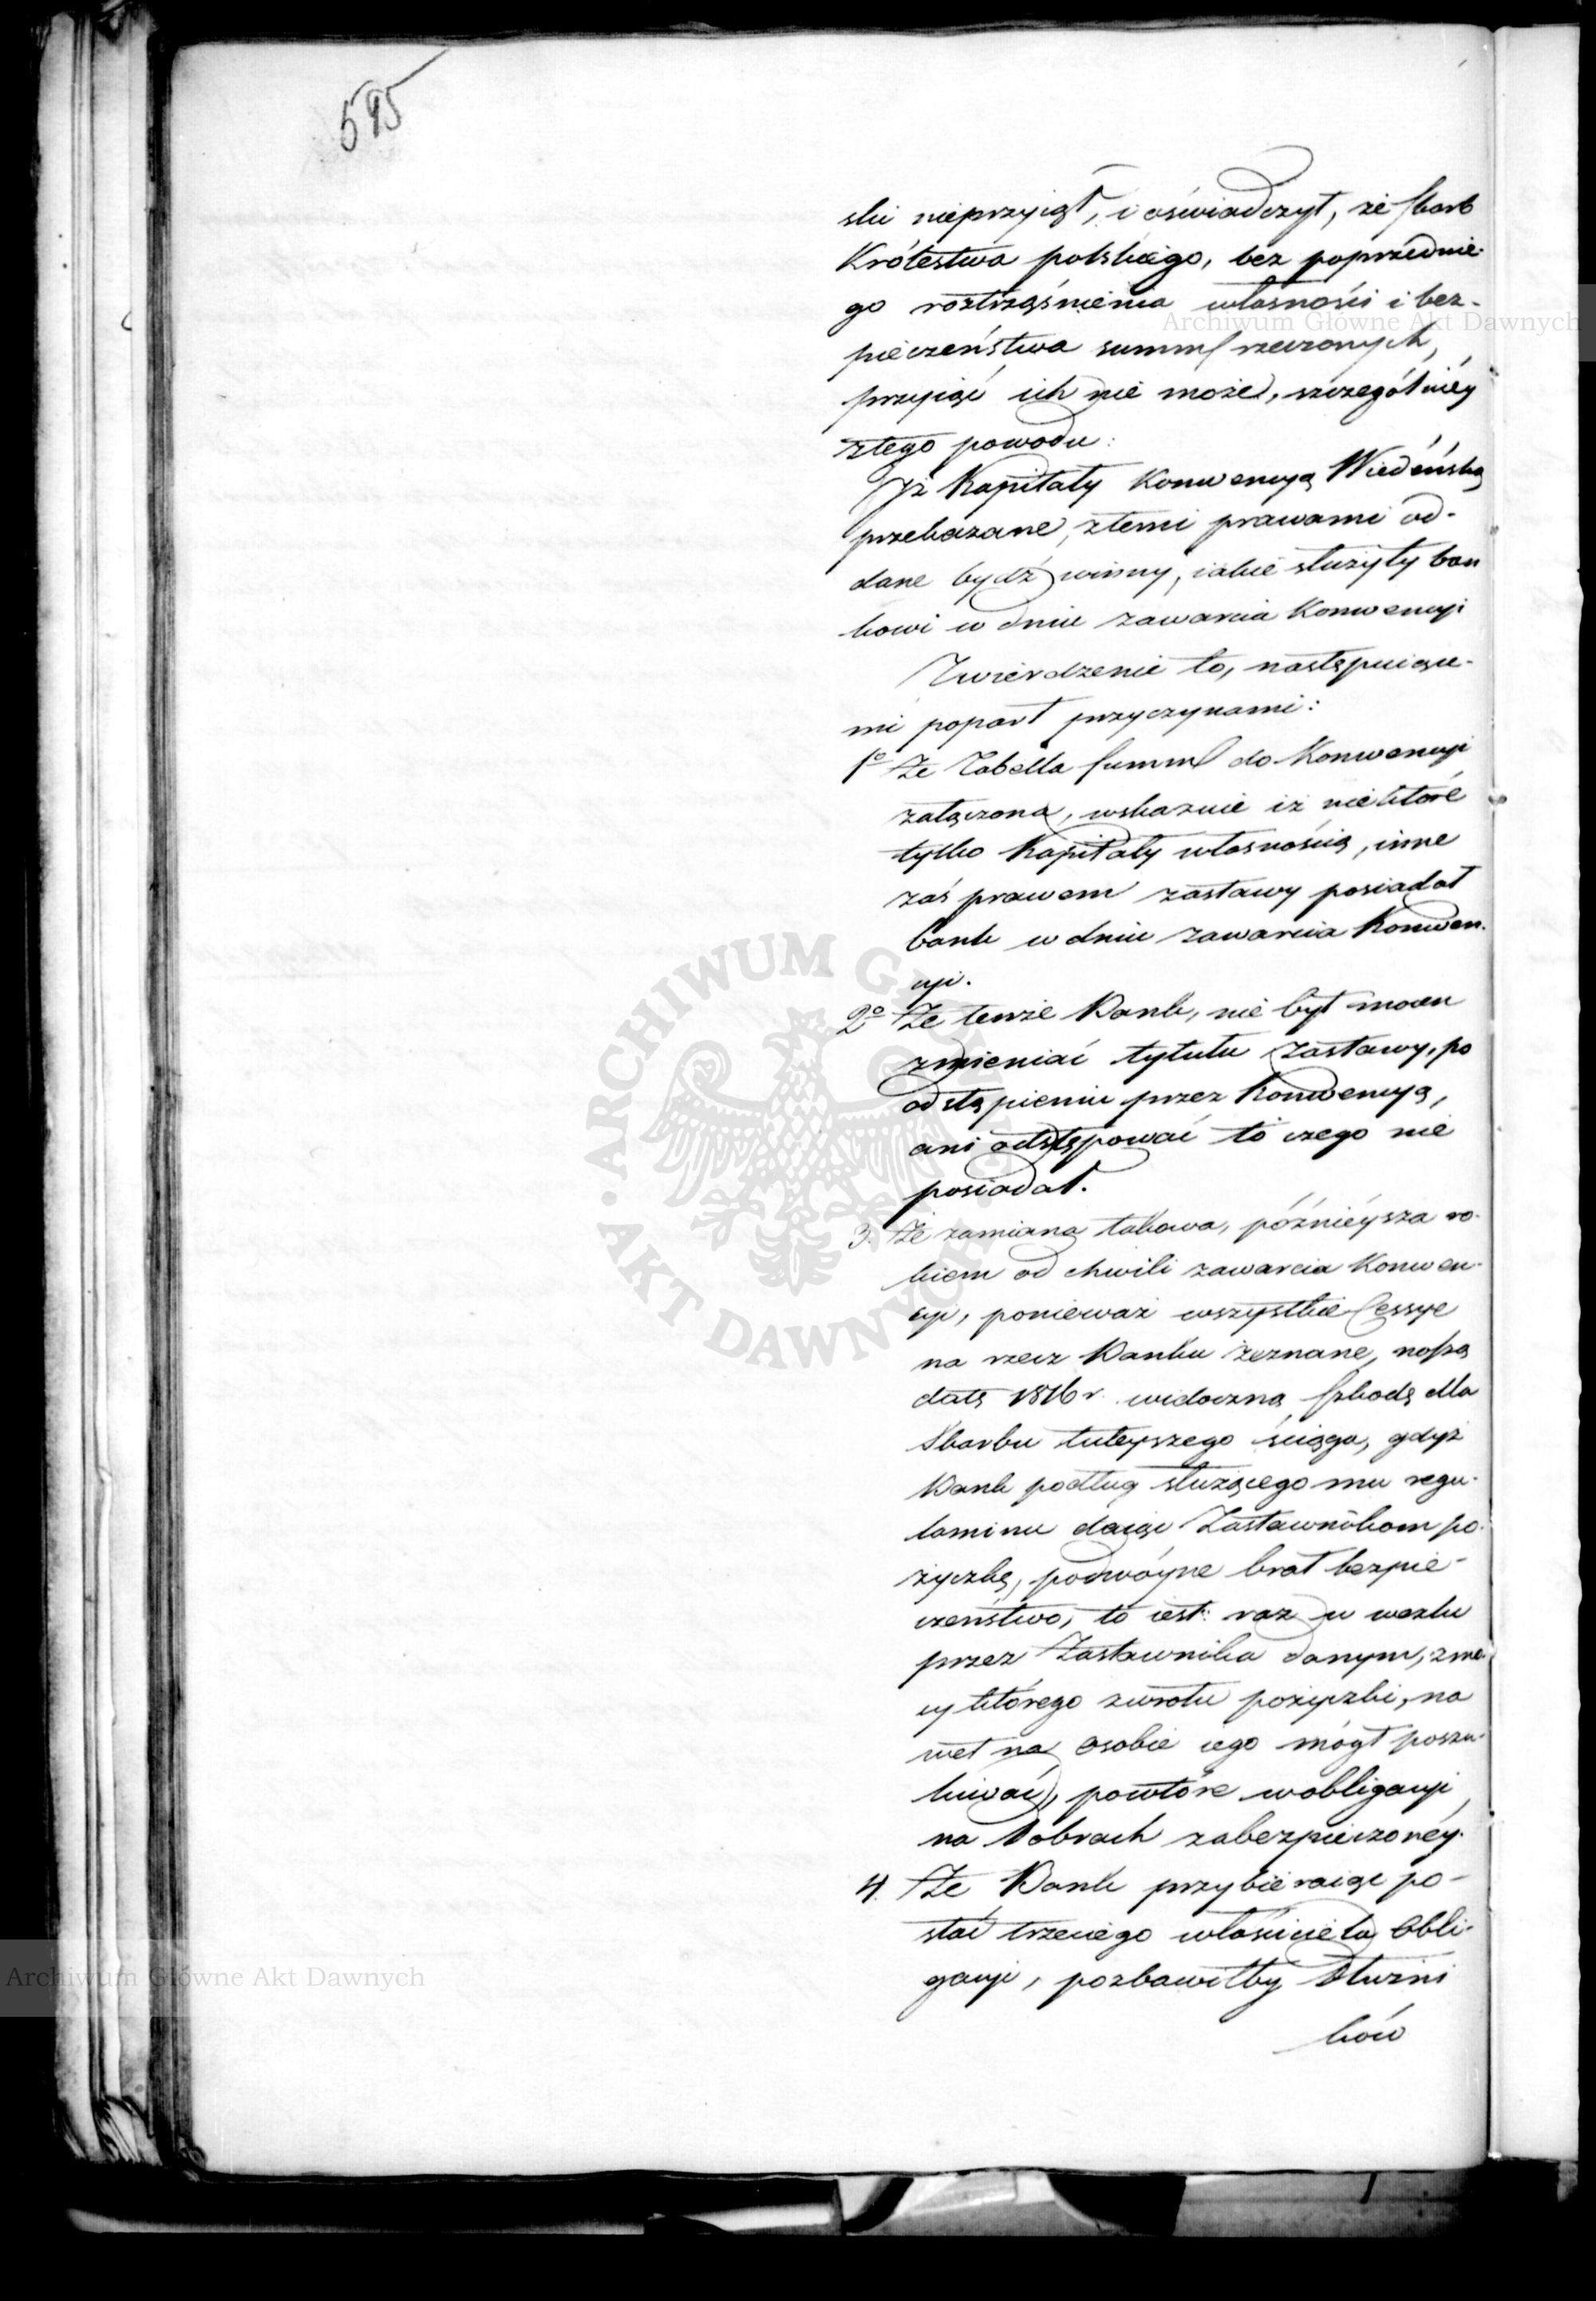 595
ski nieprzyiął, i oświadczył, że Skarb
Królestwa polskiego, bez poprzednie-
go roztrząśnienia własności i bez-
pieczeństwa summ rzeczonych,
przyiąć ich nie może, szczególniéy
ztego powodu:
Jż Kapitały Konwencyą Wiedeńską
przekazane, ztemi prawami od-
dane bydź winny, iakie służyły ban
kowi w dniu zawarcia Konwencyi
Twierdzenie to, następuiące-
mi poparł przyczynami:
1o Że Tabella summ do Konwencyi
załączona, wskazuie iż niektóre
tylko Kapitały własnością, inne
zaś prawem zastawy posiadał
bank w dniu zawarcia Konwen-
cyi.
2o Że tenże Bank, nie był mocen
zmieniać tytułu Zastawy, po
odstąpieniu przez Konwencyą,
ani odstępować to czego nie
posiadał.
3. Że zamiana takowa, późniéysza ro-
kiem od chwili zawarcia Konwen-
cyi, ponieważ wszystkie Cessye
na rzecz Banku zeznane, noszą
datę 1816 r. widoczną szkodę dla
Skarbu tuteyszego ściąga, gdyż
Bank podług służącego mu regu-
laminu daiąc Zastawnikom po-
życzkę, podwóyne brał bezpie-
czeństwo, to iest: raz w wexlu
przez Zastawnika danym, zmo-
cy którego zwrotu pożyczki, na
wet na osobie iego mógł poszu-
kiwać, powtóre wobligacyi,
na Dobrach zabezpieczonéy.
4. Że Bank przybieraiąc po-
stać trzeciego właściciela Obli-
gacyi, pozbawiłby Dłużni
ków
Archiwum Główne Akt Dawnych
ARCHIWUM GŁÓWNE AKT DAWNYCH
Archiwum Główne Akt Dawnych